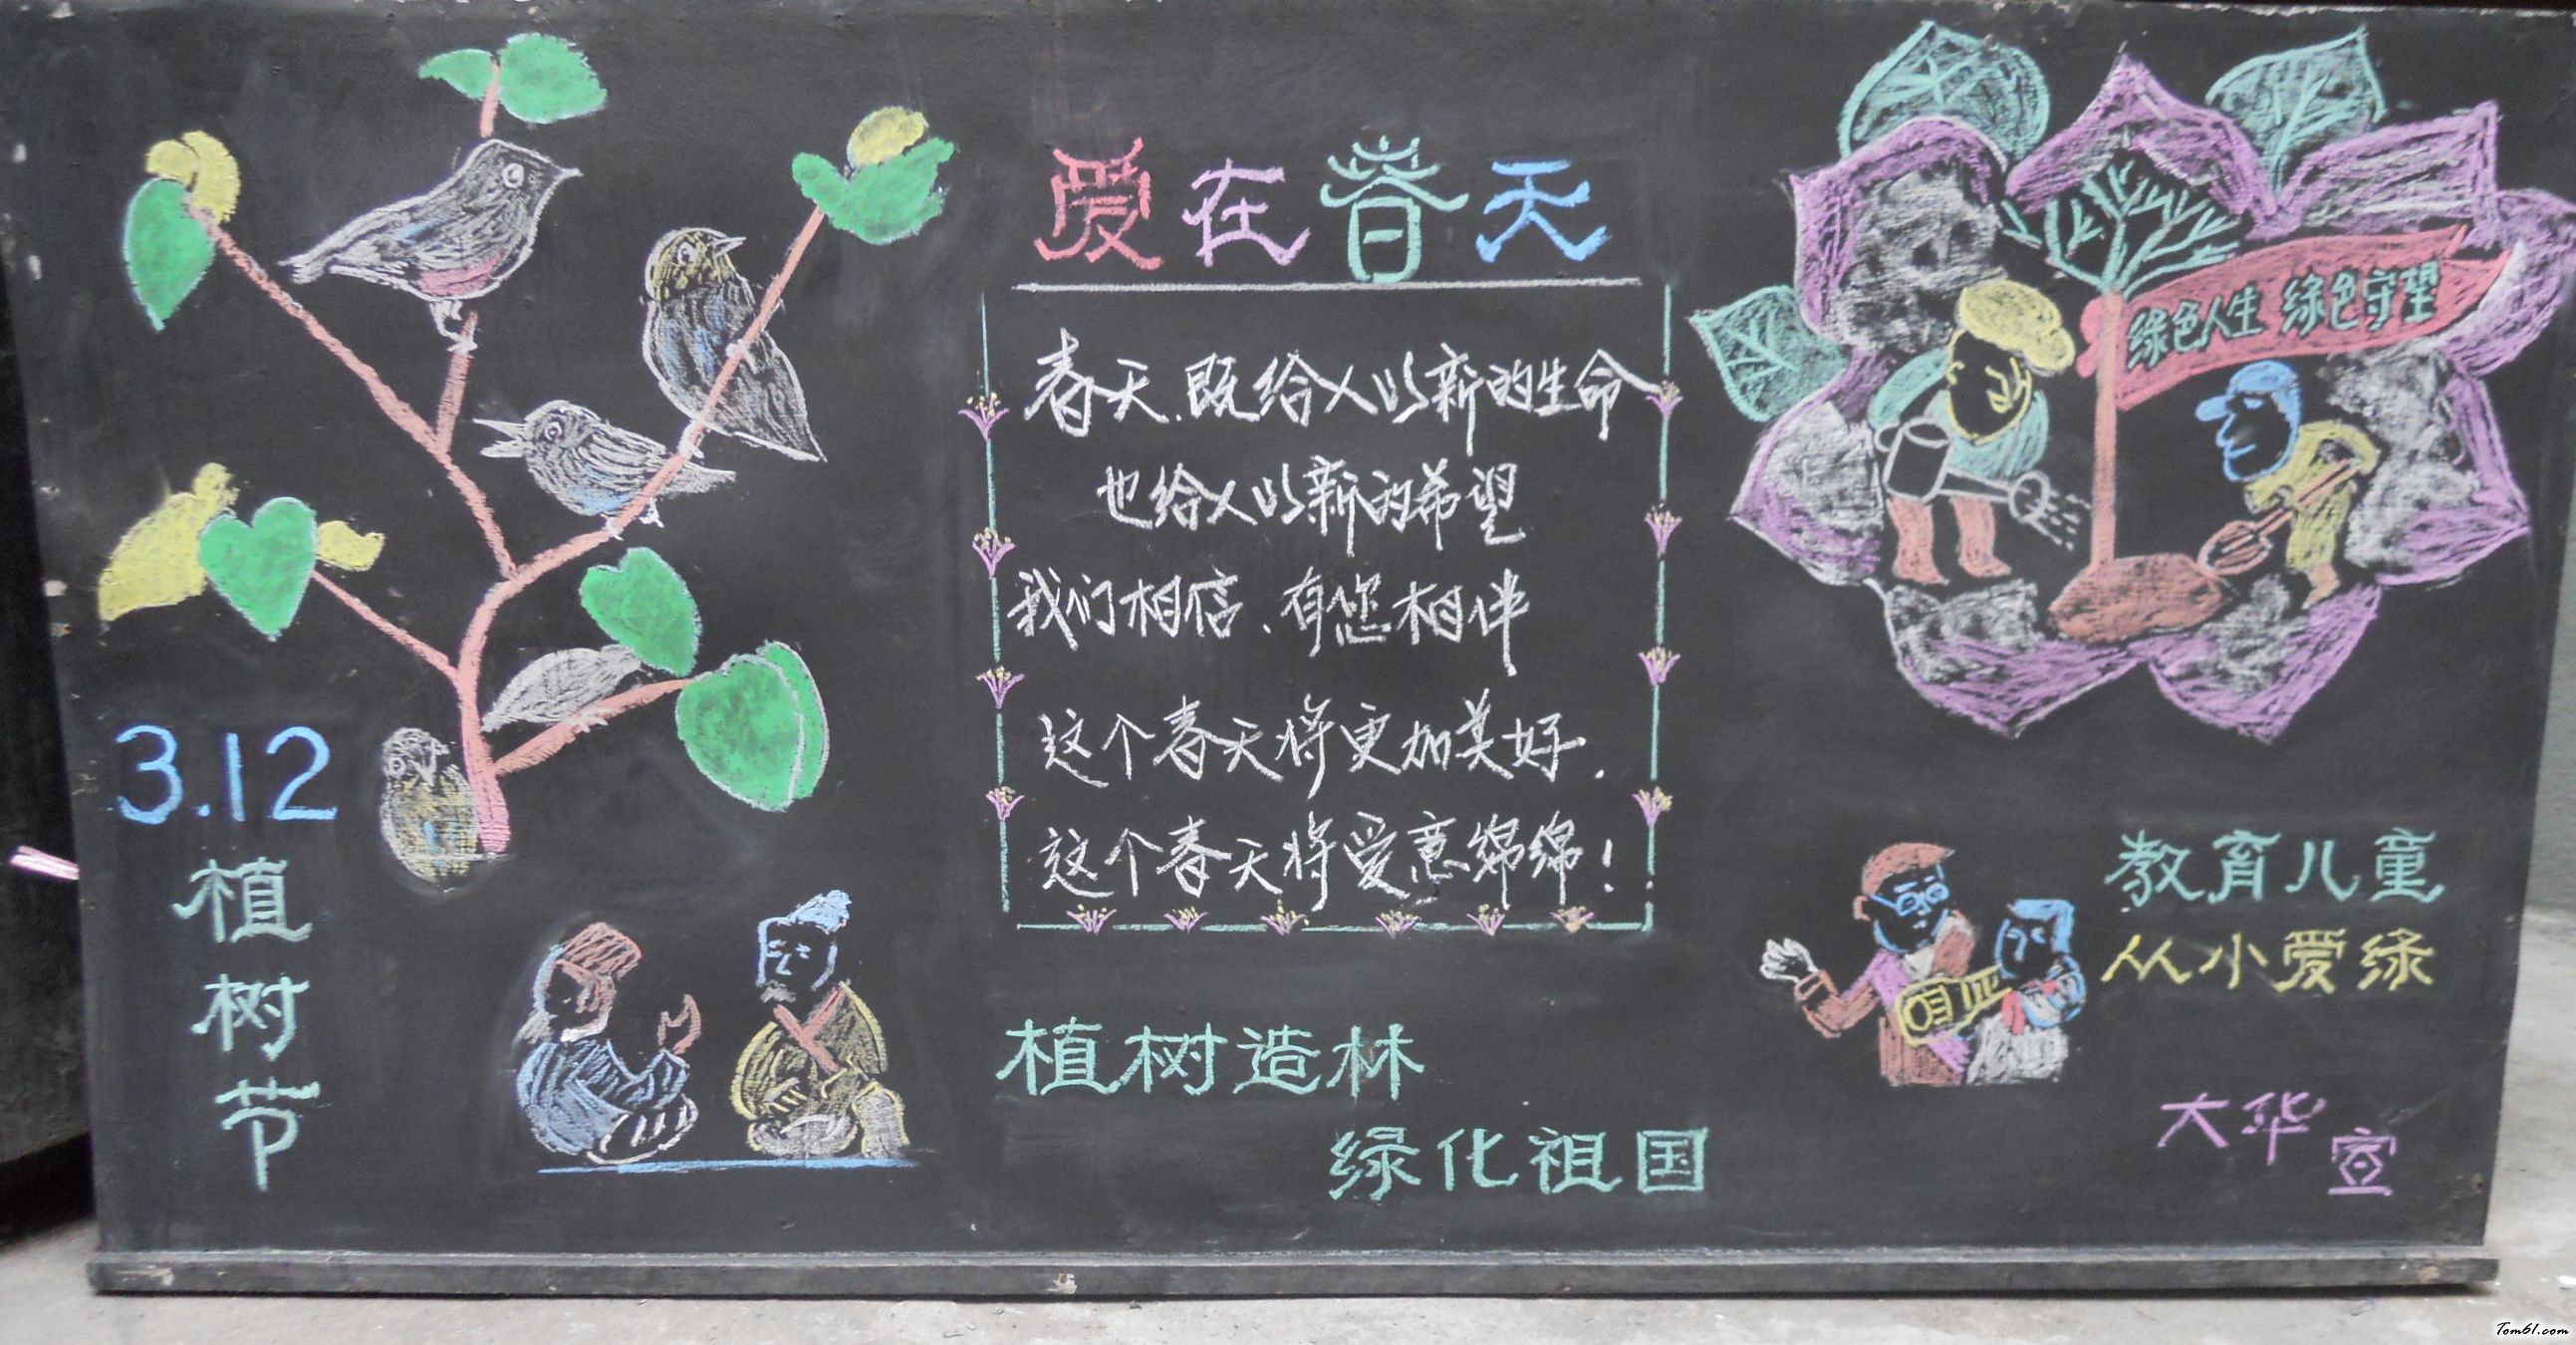 爱在春天
春天.既给人以新的生命
也给人以新的希望
我们相信、有您相伴
这个春天将更加美好.
这个春天将爱意绵绵!
绿色人生 绿色守望
3.12
植
树
节
植树造林
绿化祖国
教育儿童
从小爱绿
大华宣
Tom61.com